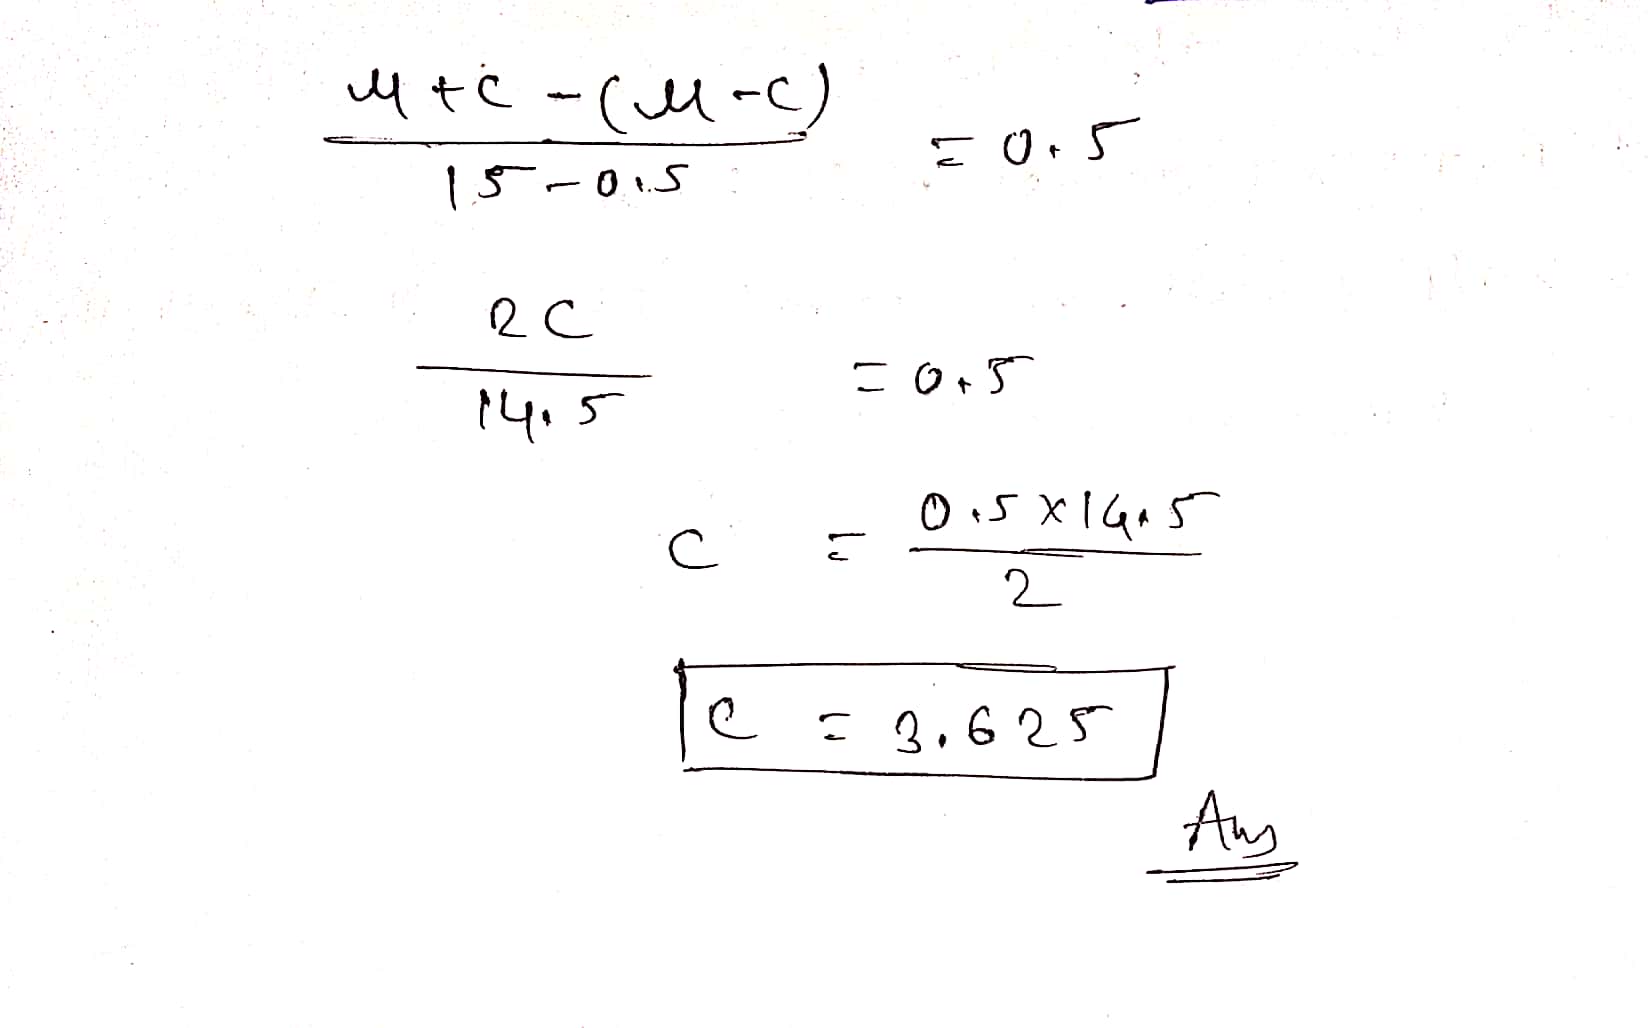 μ + c - (μ - c)
15 - 0.5 = 0.5
2C
14.5 = 0.5
C = 0.5 × 14.5
2
C = 3.625
Ans